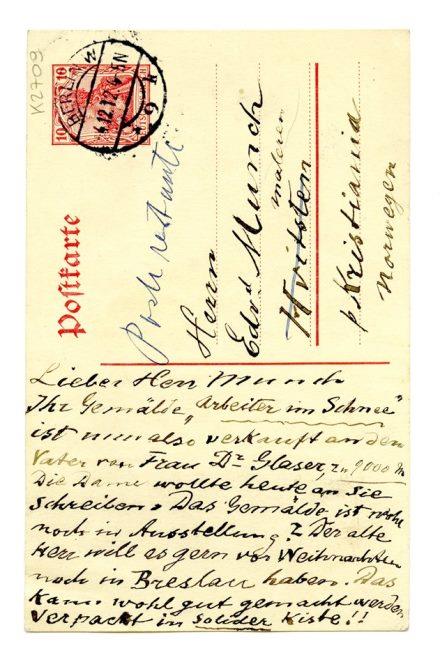 K2709
10 10
BERLIN W
4.12.12. 4-5N
* 9 k
Postkarte
Herrn
Edvd Munch
maleren
Hvitsten
p Kristiania
Norwegen
Lieber Herr Munch
Ihr Gemälde „Arbeiter im Schnee"
ist nun also verkauft an den
Vater von Frau Dr Glaser, zu 9000 M
Die Dame wollte heute an Sie
schreiben. Das Gemälde ist wohl
noch in Ausstellung? Der alte
Herr will es gern vor Weihnachten
noch in Breslau haben. Das
kann wohl gut gemacht werden
verpackt in solider Kiste!!